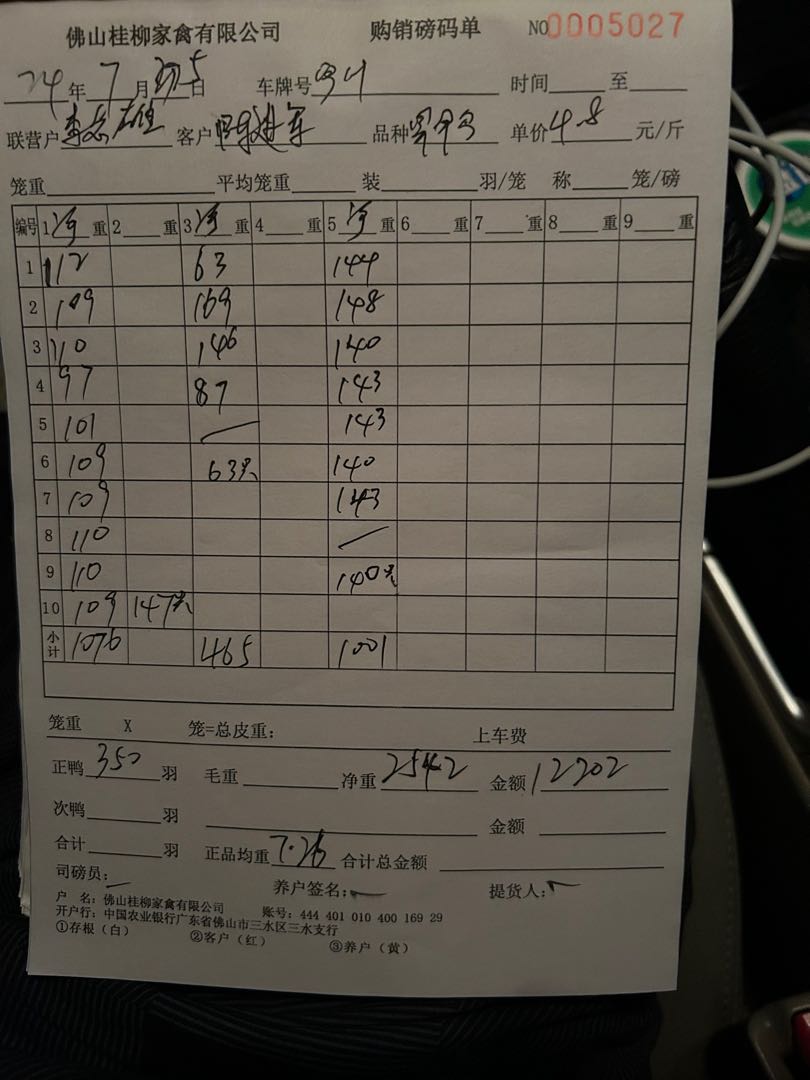 佛山桂柳家禽有限公司 购销磅码单 NO0005027
24年7月5日 车牌号 时间 至
联营户李志雄 客户 品种 单价4.8元/斤
笼重 平均笼重 装 羽/笼 称 笼/磅
编号 1净重 2 重 3净重 4 重 5净重 6 重 7 重 8 重 9 重
1 112 63 144
2 109 169 148
3 110 146 140
4 97 87 143
5 101 143
6 109 63只 140
7 109 143
8 110
9 110 140只
10 109 147只
小计 1076 465 1001
笼重 X 笼=总皮重: 上车费
正鸭350羽 毛重 净重2542 金额12202
次鸭 羽 金额
合计 羽 正品均重7.26 合计总金额
司磅员: 养户签名: 提货人:
户 名: 佛山桂柳家禽有限公司 账号: 444 401 010 400 169 29
开户行: 中国农业银行广东省佛山市三水区三水支行
①存根(白) ②客户(红) ③养户(黄)